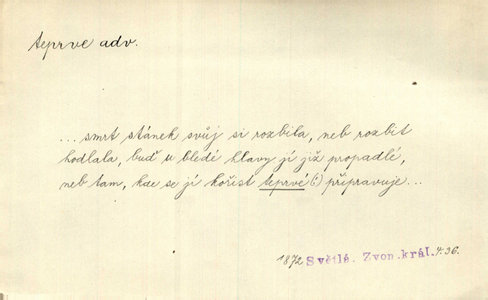 teprve adv.
... smrt stánek svůj si rozbila, neb rozbít
hodlala, buď u bledé hlavy jí již propadlé,
neb tam, kde se jí kořist teprvé (!) připravuje...
1872 Světlá. Zvon.král. 4. 36.